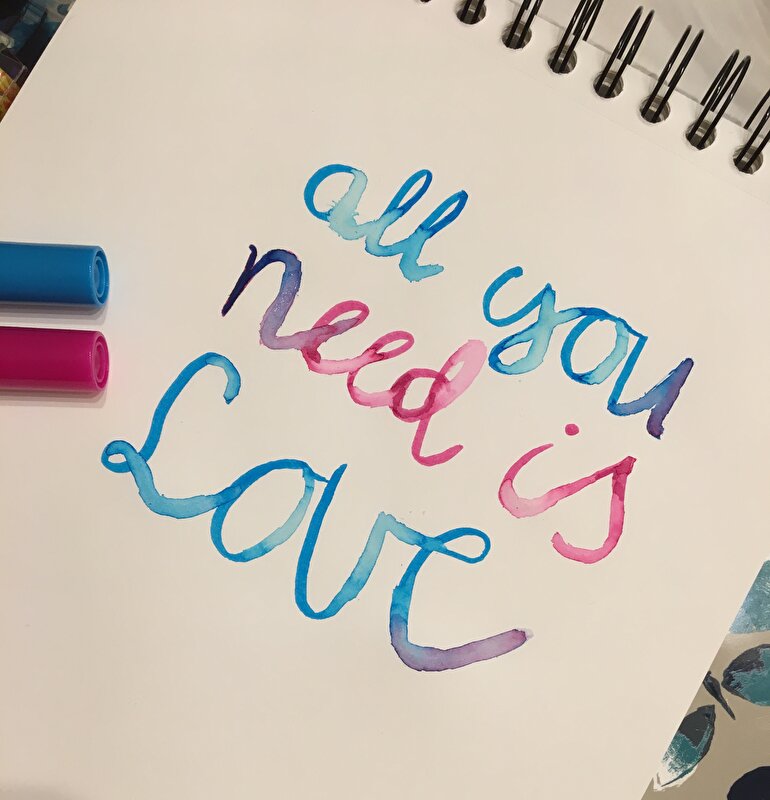 all you
need is
Love